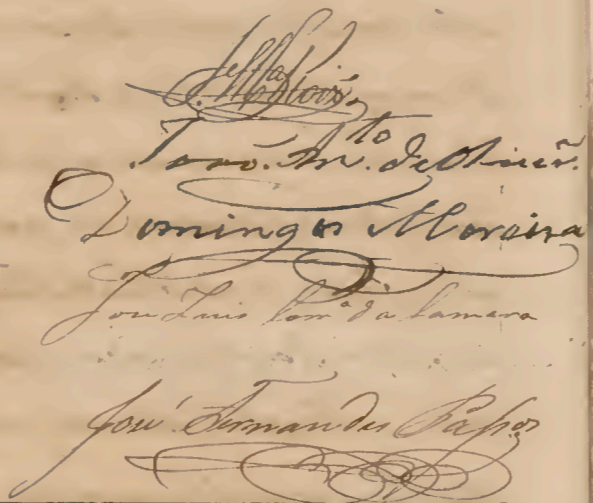 An.to de Oliveir.ª
Domingos Moreira
José Luis Corr.ª da Camara
José Fernandes Passos